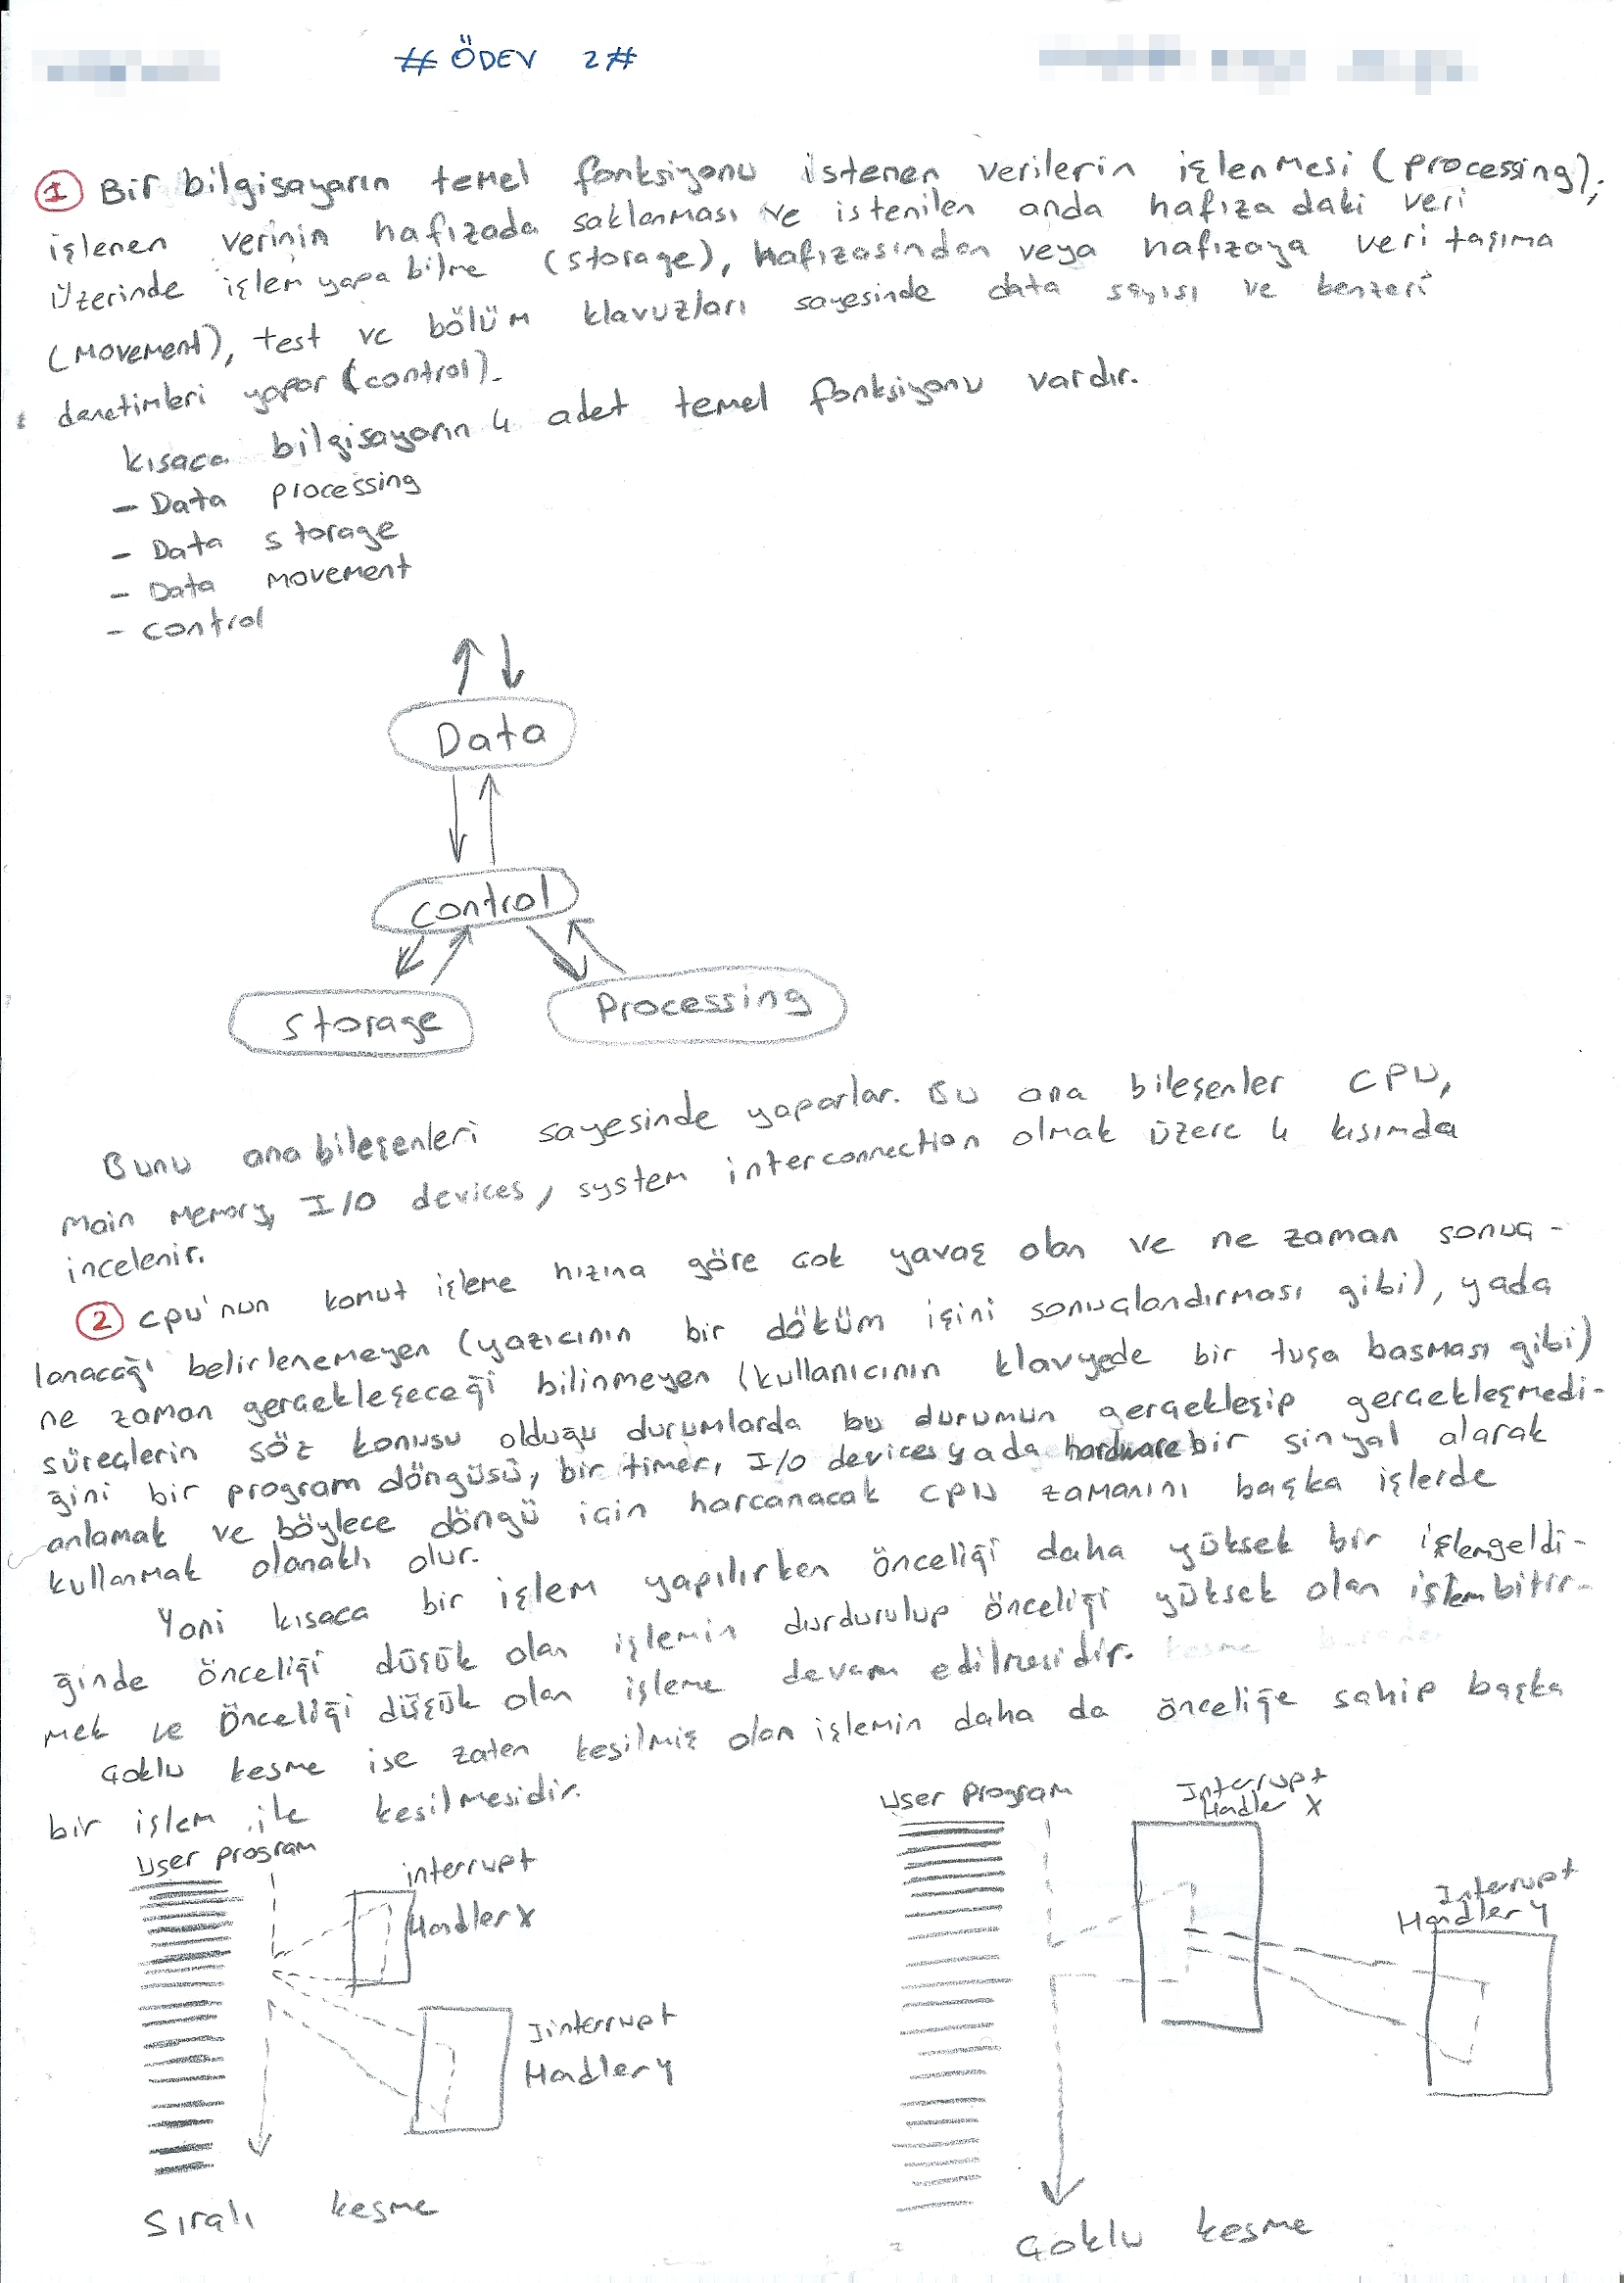 # ÖDEV 2#
1 Bir bilgisayarın temel fonksiyonu istenen verilerin işlenmesi (processing);
işlenen verinin hafızada saklanması ve istenilen anda hafıza daki veri
üzerinde işlem yapa bilme (storage), hafızasından veya hafızaya veri taşıma
(movement), test ve bölüm klavuzları sayesinde data sayısı ve benzeri
denetimleri yapar (control).
kısaca bilgisayarın 4 adet temel fonksiyonu vardır.
- Data processing
- Data storage
- Data movement
- control
Data
control
storage
Processing
Bunu ana bileşenleri sayesinde yaparlar. Bu ana bileşenler CPU,
main memory, I/O devices, system interconnection olmak üzere 4 kısımda
incelenir.
2 cpu'nun komut işleme hızına göre çok yavaş olan ve ne zaman sonuç-
lanacağı belirlenemeyen (yazıcının bir döküm işini sonuçlandırması gibi), yada
ne zaman gerçekleşeceği bilinmeyen (kullanıcının klavyede bir tuşa basması gibi)
süreçlerin söz konusu olduğu durumlarda bu durumun gerçekleşip gerçekleşmedi-
ğini bir program döngüsü, bir timer, I/O devices yada hardware bir sinyal alarak
anlamak ve böylece döngü için harcanacak CPU zamanını başka işlerde
kullanmak olanaklı olur.
Yani kısaca bir işlem yapılırken önceliği daha yüksek bir işlem geldi-
ğinde önceliği düşük olan işlemin durdurulup önceliği yüksek olan işlem bitir-
mek ve önceliği düşük olan işleme devam edilmesidir. kesme
Çoklu kesme ise zaten kesilmiş olan işlemin daha da önceliğe sahip başka
bir işlem ile kesilmesidir.
User program
interrupt
Handler x
Iinterrupt
Handler y
Sıralı kesme
User program
Interrupt
Handler X
Interrupt
Handler y
Çoklu kesme